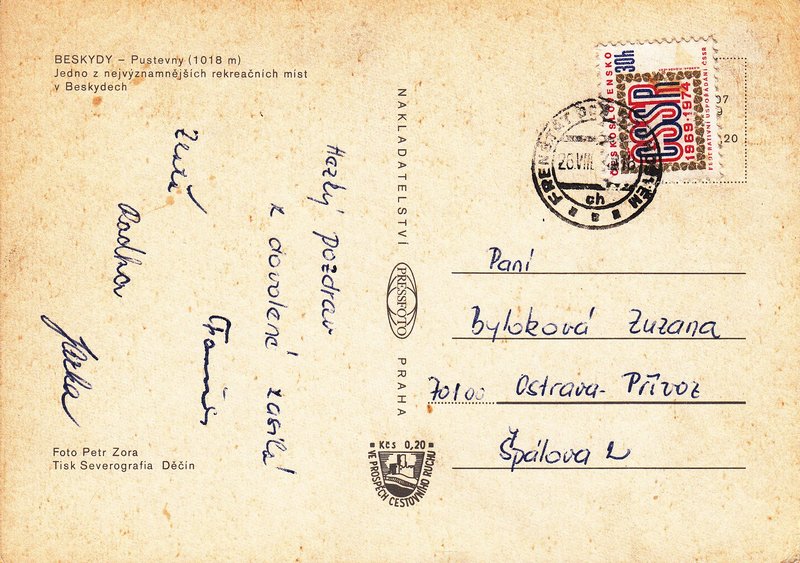 BESKYDY – Pustevny (1018 m)
Jedno z nejvýznamnějších rekreačních míst
v Beskydech
Hezký pozdrav
z dovolené zasílá
Radka
Jirka
NAKLADATELSTVÍ
PRESSFOTO
PRAHA
Kčs 0,20
VE PROSPĚCH CESTOVNÍHO RUCHU
ČESKOSLOVENSKO
30h
ČSSR
1969-1974
FEDERATIVNÍ USPOŘÁDÁNÍ ČSSR
FRENŠTÁT POD
26.VIII
ch
a
07
9
20
Paní
Byloková Zuzana
70100 Ostrava-Přívoz
Špálova 2
Foto Petr Zora
Tisk Severografia Děčín